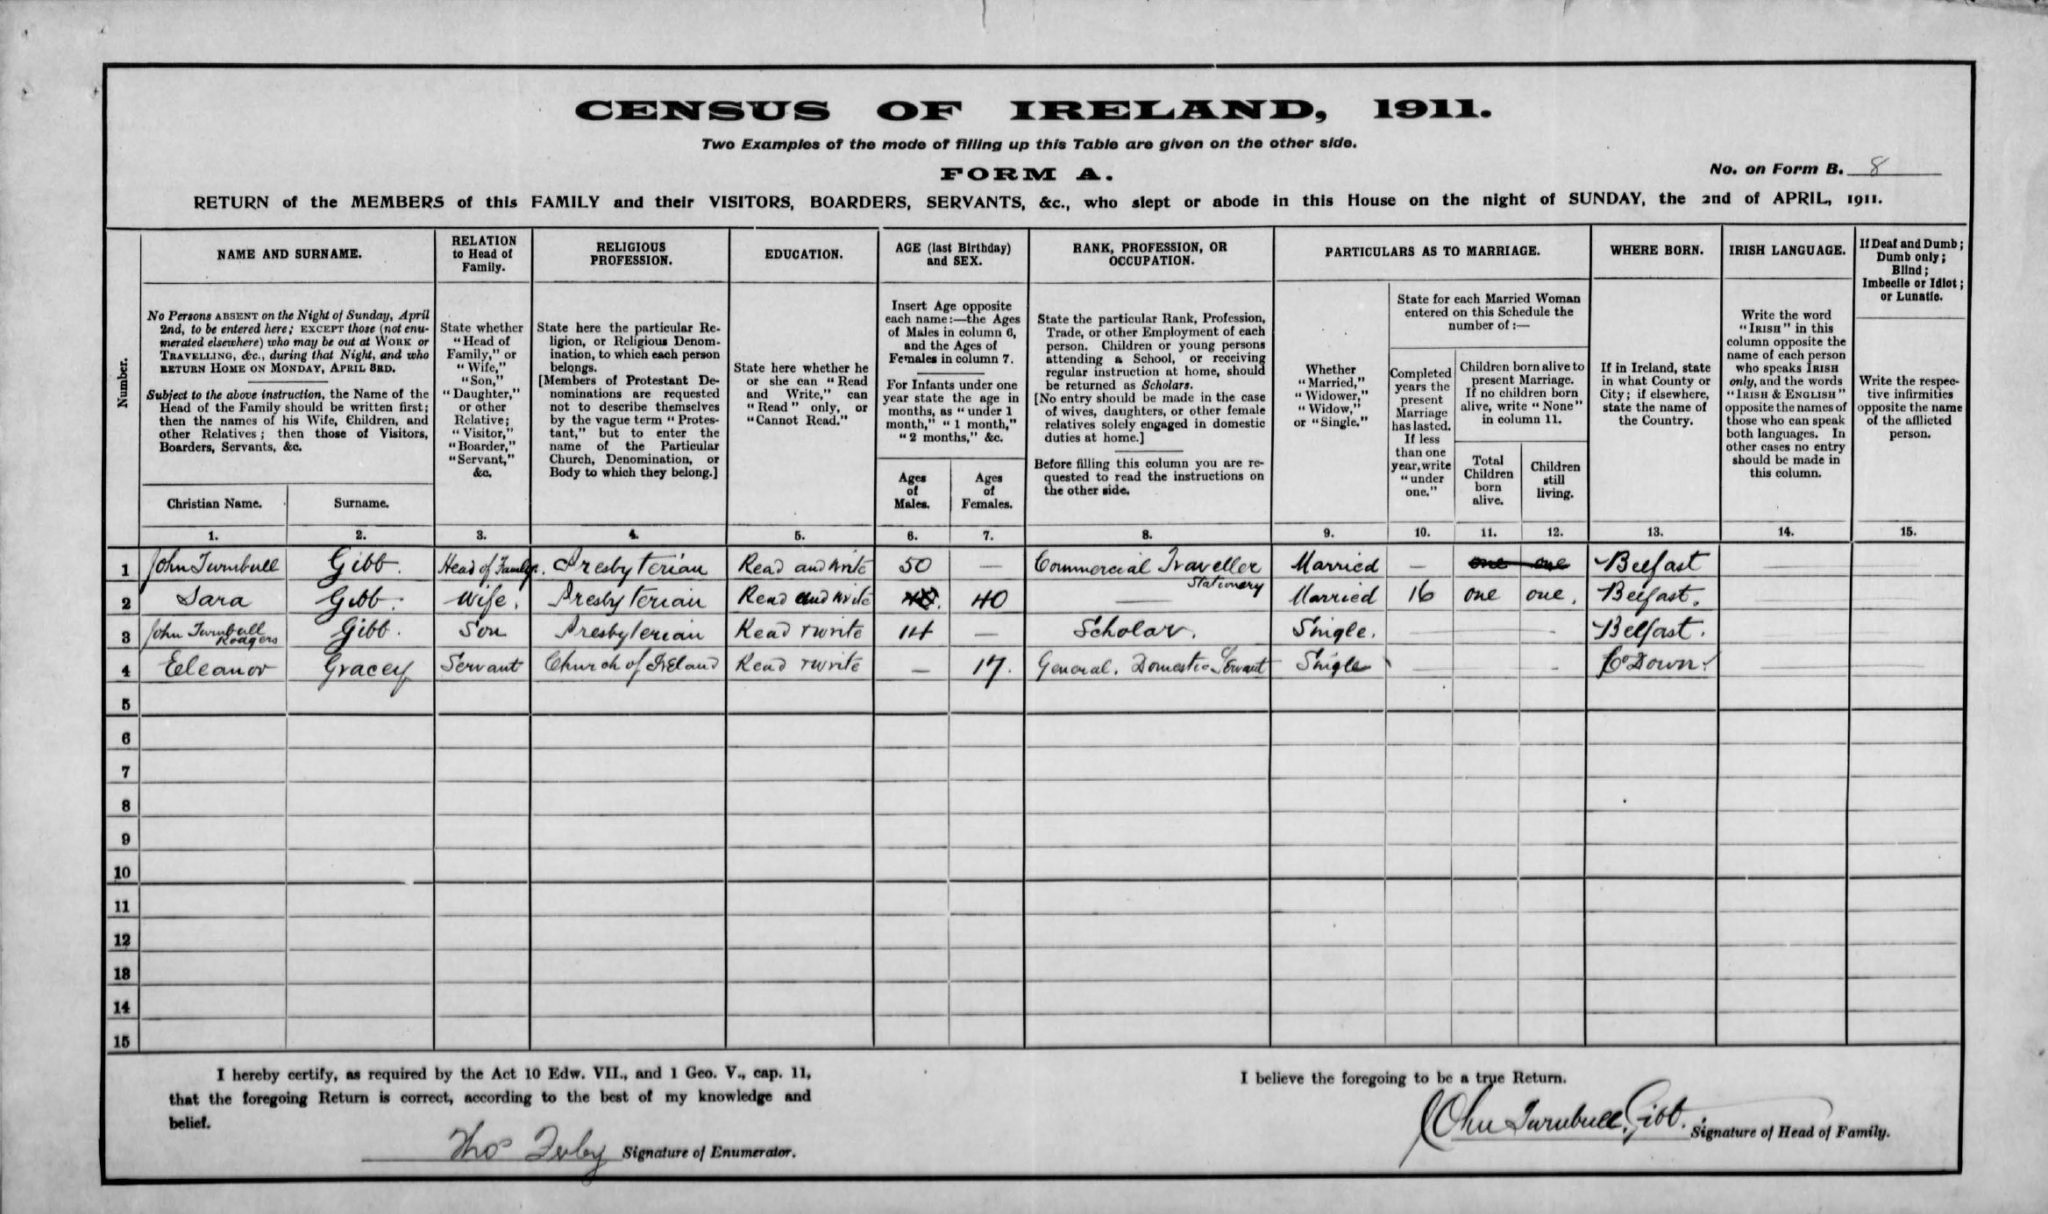 CENSUS OF IRELAND, 1911.
Two Examples of the mode of filling up this Table are given on the other side.
FORM A.
No. on Form B. 8
RETURN of the MEMBERS of this FAMILY and their VISITORS, BOARDERS, SERVANTS, &c., who slept or abode in this House on the night of SUNDAY, the 2nd of APRIL, 1911.
Number.
NAME AND SURNAME.
No Persons ABSENT on the Night of Sunday, April
2nd, to be entered here; EXCEPT those (not enu-
merated elsewhere) who may be out at WORK or
TRAVELLING, &c., during that Night, and who
RETURN HOME ON MONDAY, APRIL 3RD.
Subject to the above instruction, the Name of the
Head of the Family should be written first;
then the names of his Wife, Children, and
other Relatives; then those of Visitors,
Boarders, Servants, &c.
Christian Name.
Surname.
RELATION
to Head of
Family.
State whether
"Head of
Family," or
"Wife,"
"Son,"
"Daughter,"
or other
Relative;
"Visitor,"
"Boarder,"
"Servant,"
&c.
RELIGIOUS
PROFESSION.
State here the particular Re-
ligion, or Religious Denom-
ination, to which each person
belongs.
[Members of Protestant De-
nominations are requested
not to describe themselves
by the vague term "Protes-
tant," but to enter the
name of the Particular
Church, Denomination, or
Body to which they belong.]
EDUCATION.
State here whether he
or she can "Read
and Write," can
"Read" only, or
"Cannot Read."
AGE (last Birthday)
and SEX.
Insert Age opposite
each name:—the Ages
of Males in column 6,
and the Ages of
Females in column 7.
For Infants under one
year state the age in
months, as "under 1
month," "1 month,"
"2 months," &c.
Ages
of
Males.
Ages
of
Females.
RANK, PROFESSION, OR
OCCUPATION.
State the particular Rank, Profession,
Trade, or other Employment of each
person. Children or young persons
attending a School, or receiving
regular instruction at home, should
be returned as Scholars.
[No entry should be made in the case
of wives, daughters, or other female
relatives solely engaged in domestic
duties at home.]
Before filling this column you are re-
quested to read the instructions on
the other side.
PARTICULARS AS TO MARRIAGE.
Whether
"Married,"
"Widower,"
"Widow,"
or "Single."
State for each Married Woman
entered on this Schedule the
number of:—
Completed
years the
present
Marriage
has lasted.
If less
than one
year, write
"under
one."
Children born alive to
present Marriage.
If no children born
alive, write "None"
in column 11.
Total
Children
born
alive.
Children
still
living.
WHERE BORN.
If in Ireland, state
in what County or
City; if elsewhere,
state the name of
the Country.
IRISH LANGUAGE.
Write the word
"IRISH" in this
column opposite the
name of each person
who speaks IRISH
only, and the words
"IRISH & ENGLISH"
opposite the names of
those who can speak
both languages. In
other cases no entry
should be made in
this column.
If Deaf and Dumb;
Dumb only;
Blind;
Imbecile or Idiot;
or Lunatic.
Write the respec-
tive infirmities
opposite the name
of the afflicted
person.
1. 2. 3. 4. 5. 6. 7. 8. 9. 10. 11. 12. 13. 14. 15.
1 John Turnbull Gibb. Head of Family. Presbyterian Read and write 50 — Commercial Traveller Stationery Married — one one Belfast
2 Sara Gibb. Wife. Presbyterian Read and write 40 — Married 16 one one. Belfast.
3 John Turnbull Rodgers Gibb. Son Presbyterian Read & write 14 — Scholar. Single. — — — Belfast.
4 Eleanor Gracey Servant Church of Ireland Read & write — 17. General. Domestic Servant Single — — — Co Down.
5
6
7
8
9
10
11
12
13
14
15
I hereby certify, as required by the Act 10 Edw. VII., and 1 Geo. V., cap. 11,
that the foregoing Return is correct, according to the best of my knowledge and
belief.
Thos Signature of Enumerator.
I believe the foregoing to be a true Return.
John Turnbull Gibb. Signature of Head of Family.